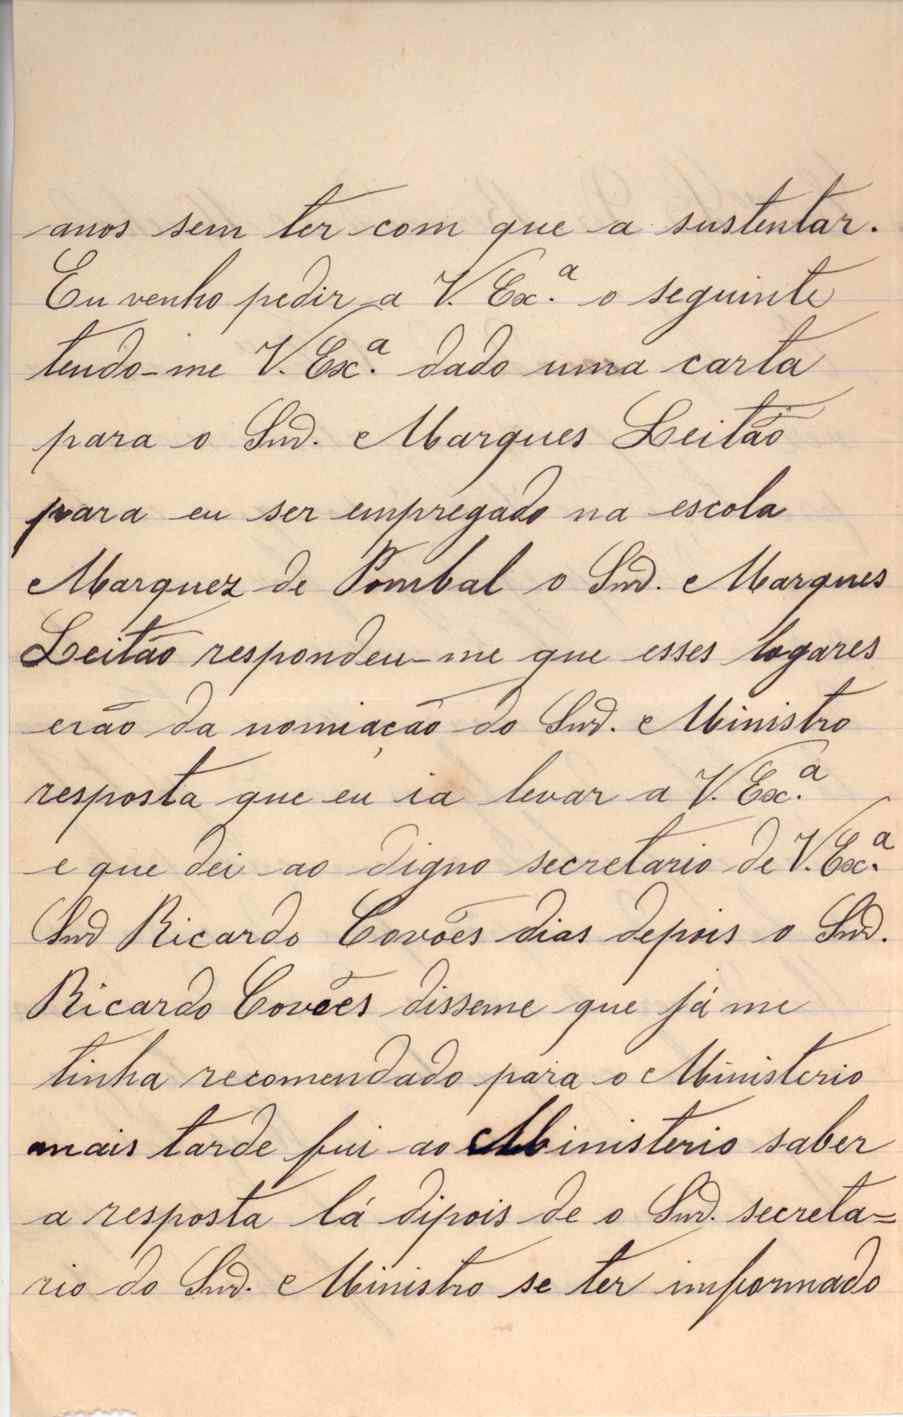 anos sem ter com que a sustentar.
Eu venho pedir a V. Ex.ª o seguinte
tendo-me V. Exª. dado uma carta
para o Snr. Marques Leitão
para eu ser empregado na escola
Marquez de Pombal o Snr. Marques
Leitão respondeu-me que esses logares
erão da nomiação do Snr. Ministro
resposta que eu ia levar a V. Ex.ª
e que dei ao digno secretario de V. Ex.ª
Snr Ricardo Covões dias depois o Snr.
Ricardo Covões disseme que já me
tinha recomendado para o Ministerio
mais tarde fui ao Ministerio saber
a resposta lá dipois de o Snr. secreta=
rio do Snr. Ministro se ter informado